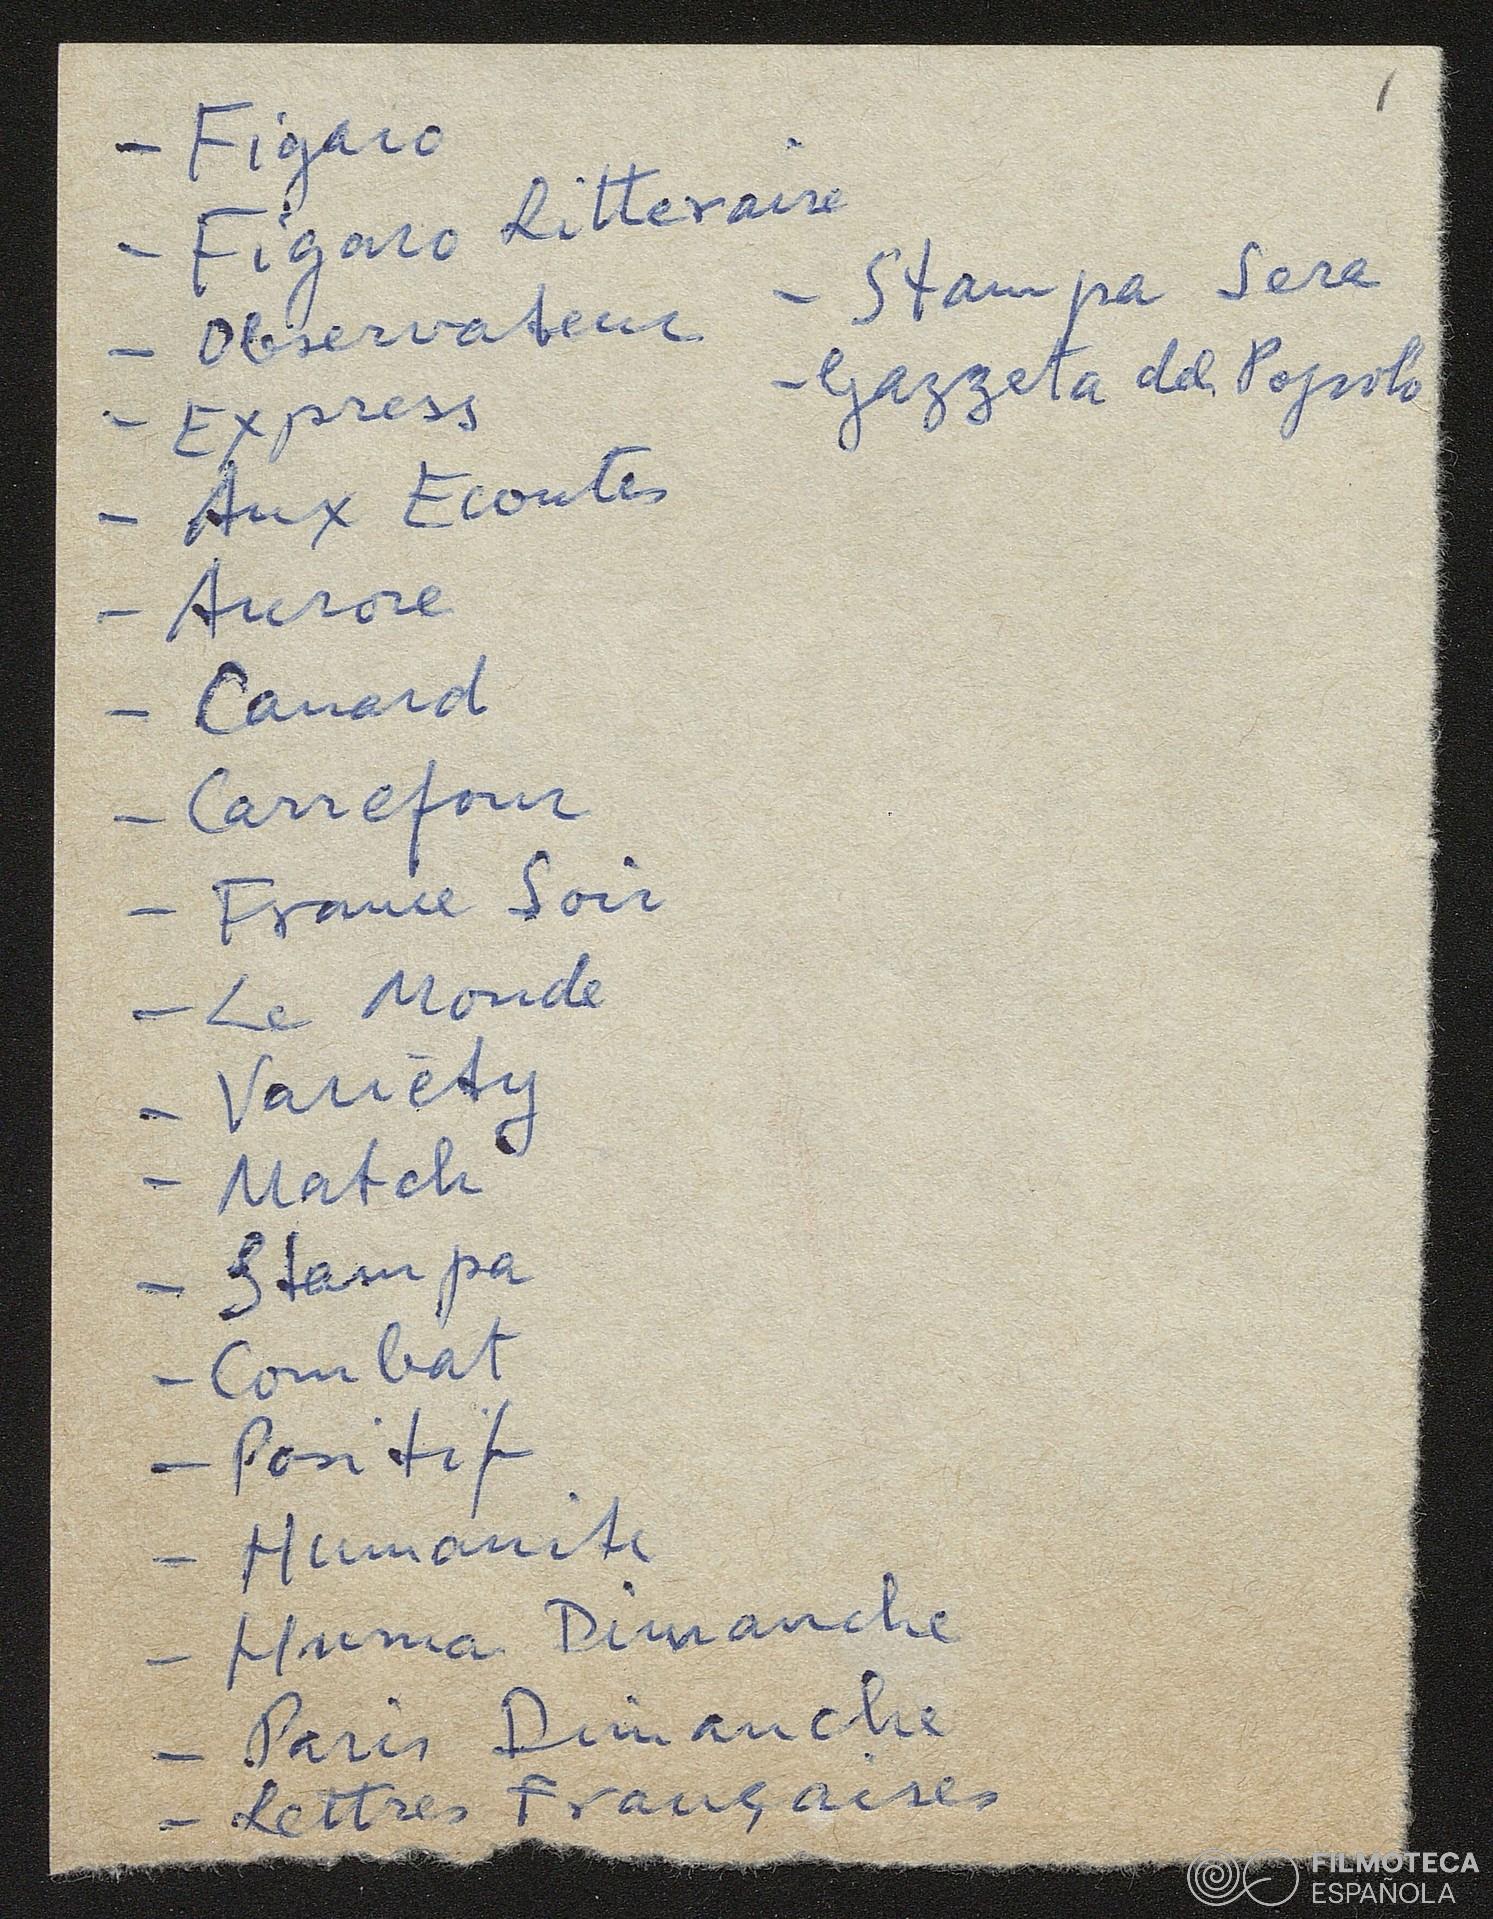 1
- Figaro
- Figaro Litteraire
- Observateur
- Express
- Aux Ecoutes
- Aurore
- Canard
- Carrefour
- France Soir
- Le Monde
- Variéty
- Match
- Stampa
- Combat
- Positif
- Humanite
- Huma Dimanche
- Paris Dimanche
- Lettres Françaises
- Stampa Sera
- Gazzeta del Popolo
FILMOTECA
ESPAÑOLA